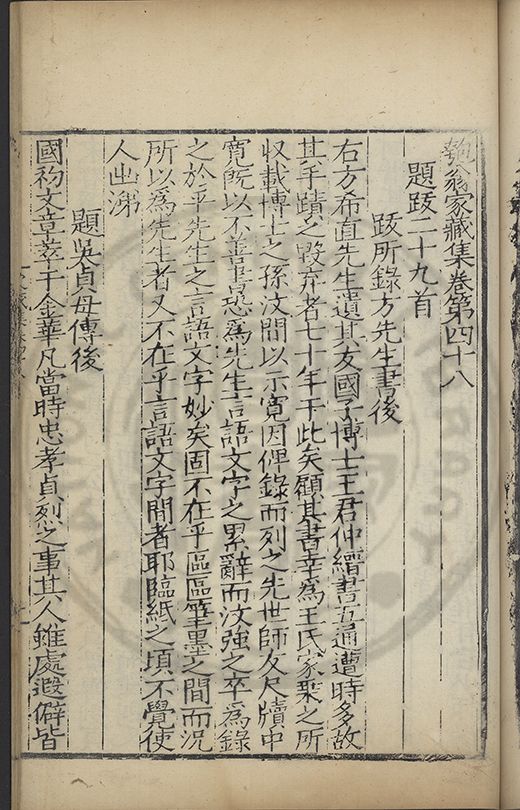 匏翁家藏集卷第四十八
題跋二十九首
跋所錄方先生書後
右方希直先生遺其友國子博士王君仲縉書五通遭時多故
其手蹟之毀弃者七十年于此矣顧其書幸為王氏家乘之所
收載博士之孫汶間以示寛因俾錄而列之先世師友尺牘中
寛旣以不善書恐為先生言語文字之累辭而汶強之卒為錄
之於乎先生之言語文字妙矣固不在乎區區筆墨之間而況
所以為先生者又不在乎言語文字間者耶臨紙之頃不覺使
人出涕
題吳貞母傳後
國初文章萃于金華凡當時忠孝貞烈之事其人雖處遐僻皆